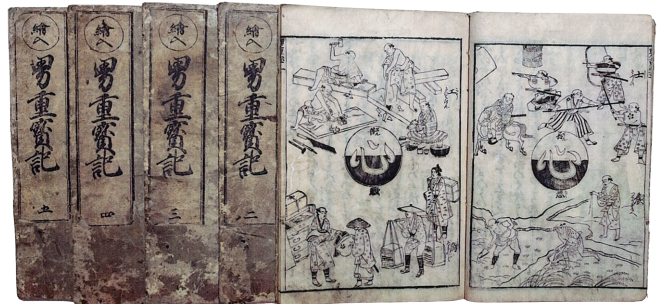 繪入
男重寶記
五
繪入
男重寶記
四
繪入
男重寶記
三
繪入
男重寶記
二
心
心